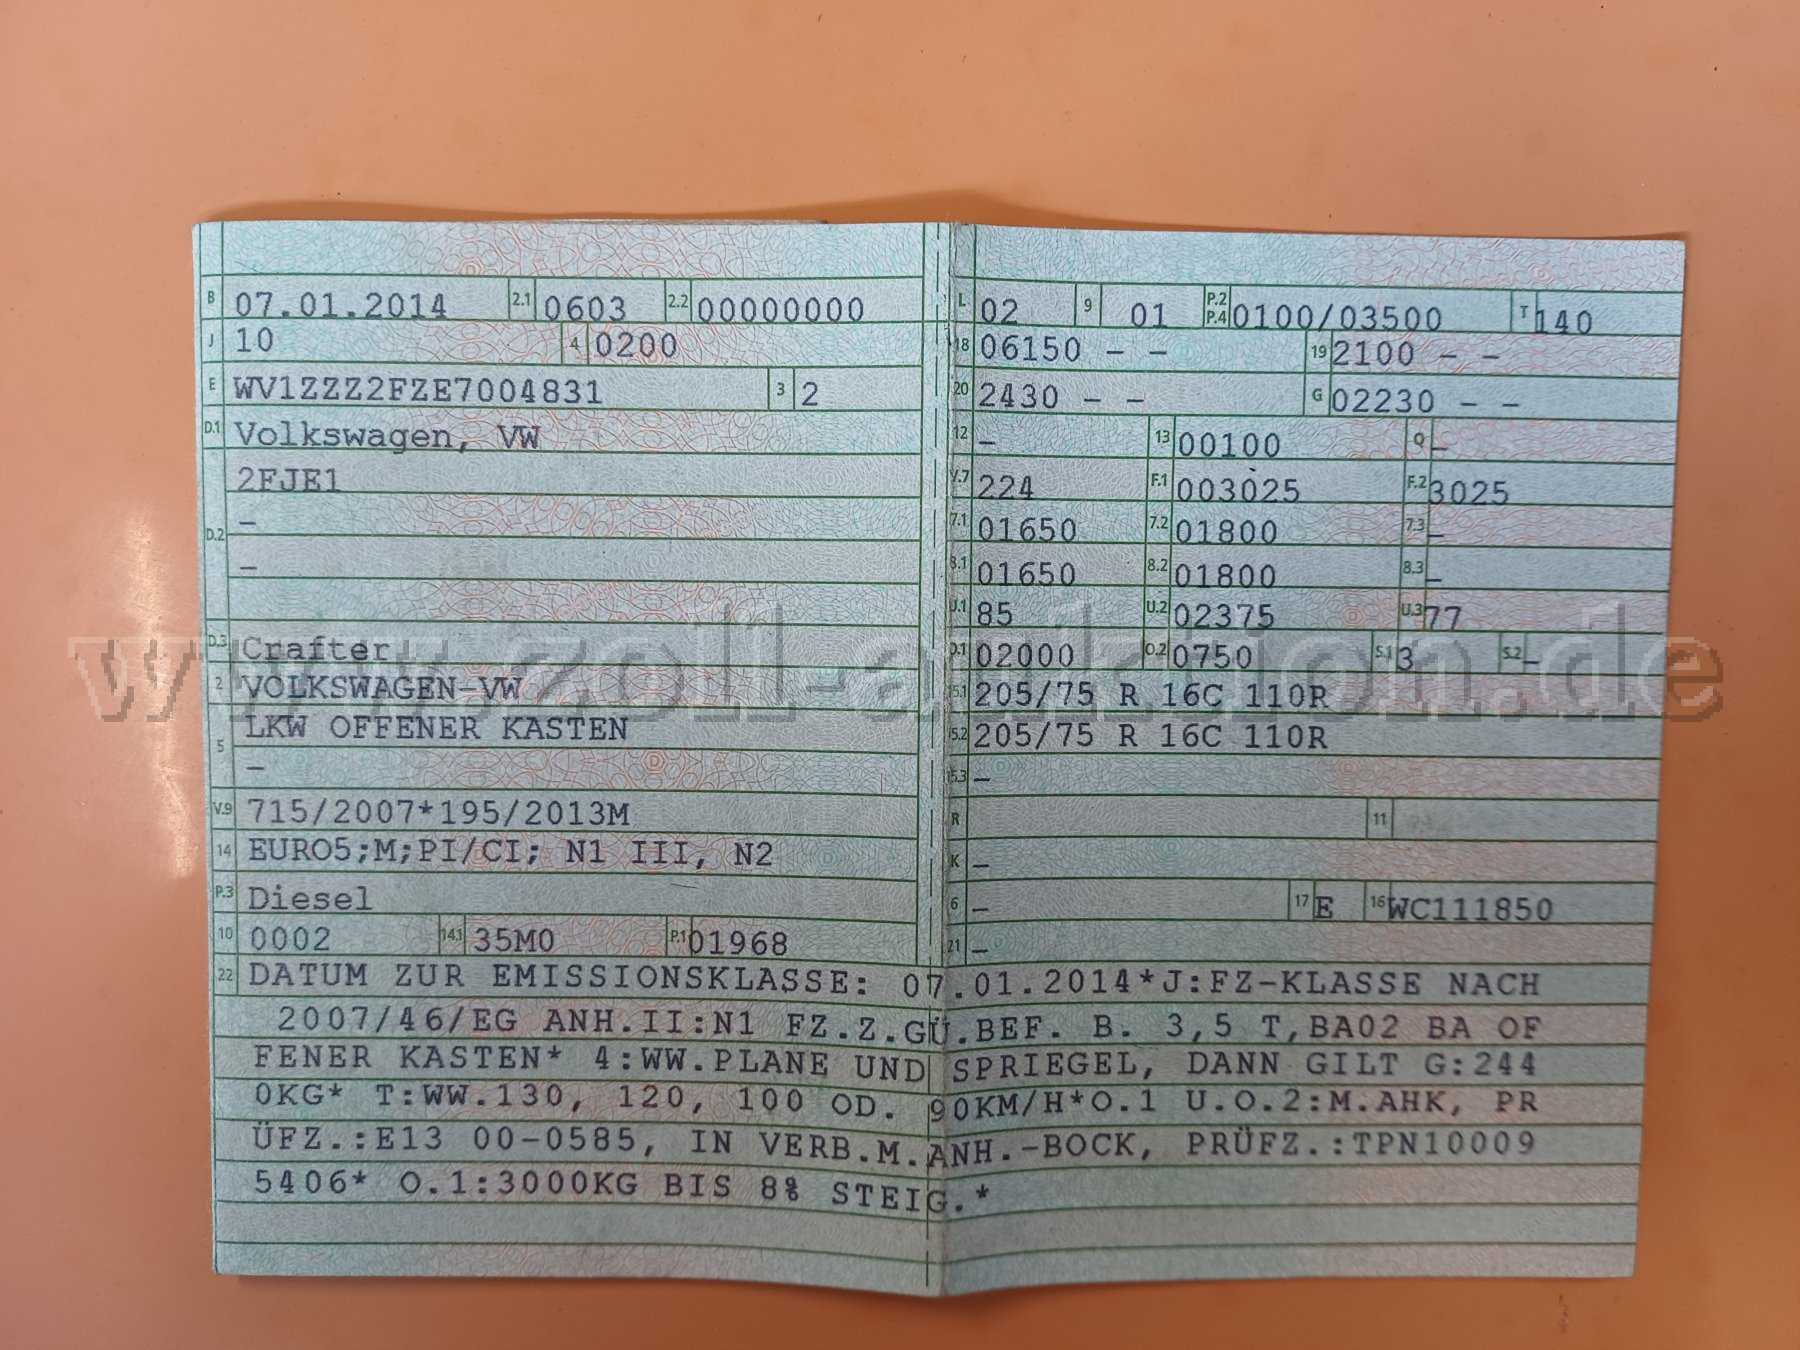 B 07.01.2014 2.1 0603 2.2 00000000
J 10 4 0200
E WV1ZZZ2FZE7004831 3 2
D.1 Volkswagen, VW
2FJE1
D.2 –
–
D.3 Crafter
2 VOLKSWAGEN-VW
5 LKW OFFENER KASTEN
–
V.9 715/2007*195/2013M
14 EURO5;M;PI/CI; N1 III, N2
P.3 Diesel
10 0002 14.1 35M0 P.1 01968
L 02 9 01 P.2 P.4 0100/03500 T 140
18 06150 – – 19 2100 – –
20 2430 – – G 02230 – –
12 – 13 00100 Q –
V.7 224 F.1 003025 F.2 3025
7.1 01650 7.2 01800 7.3 –
8.1 01650 8.2 01800 8.3 –
U.1 85 U.2 02375 U.3 77
O.1 02000 O.2 0750 S.1 3 S.2 –
15.1 205/75 R 16C 110R
15.2 205/75 R 16C 110R
15.3 –
R 11
K –
6 – 17 E 16 WC111850
21 –
22 DATUM ZUR EMISSIONSKLASSE: 07.01.2014*J:FZ-KLASSE NACH
2007/46/EG ANH.II:N1 FZ.Z.GÜ.BEF. B. 3,5 T,BA02 BA OF
FENER KASTEN* 4:WW.PLANE UND SPRIEGEL, DANN GILT G:244
0KG* T:WW.130, 120, 100 OD. 90KM/H*O.1 U.O.2:M.AHK, PR
ÜFZ.:E13 00-0585, IN VERB.M.ANH.-BOCK, PRÜFZ.:TPN10009
5406* O.1:3000KG BIS 8% STEIG.*
www.zoll-auktion.de